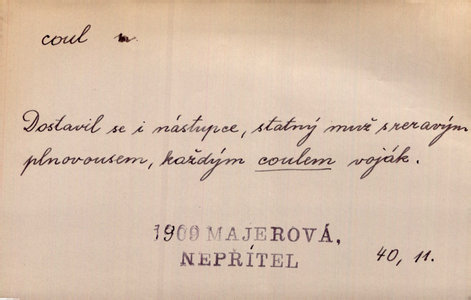 coul
Dostavil se i nástupce, statný muž s zeravým
plnovousem, každým coulem voják.
1909 MAJEROVÁ,
NEPŘÍTEL
40, 11.